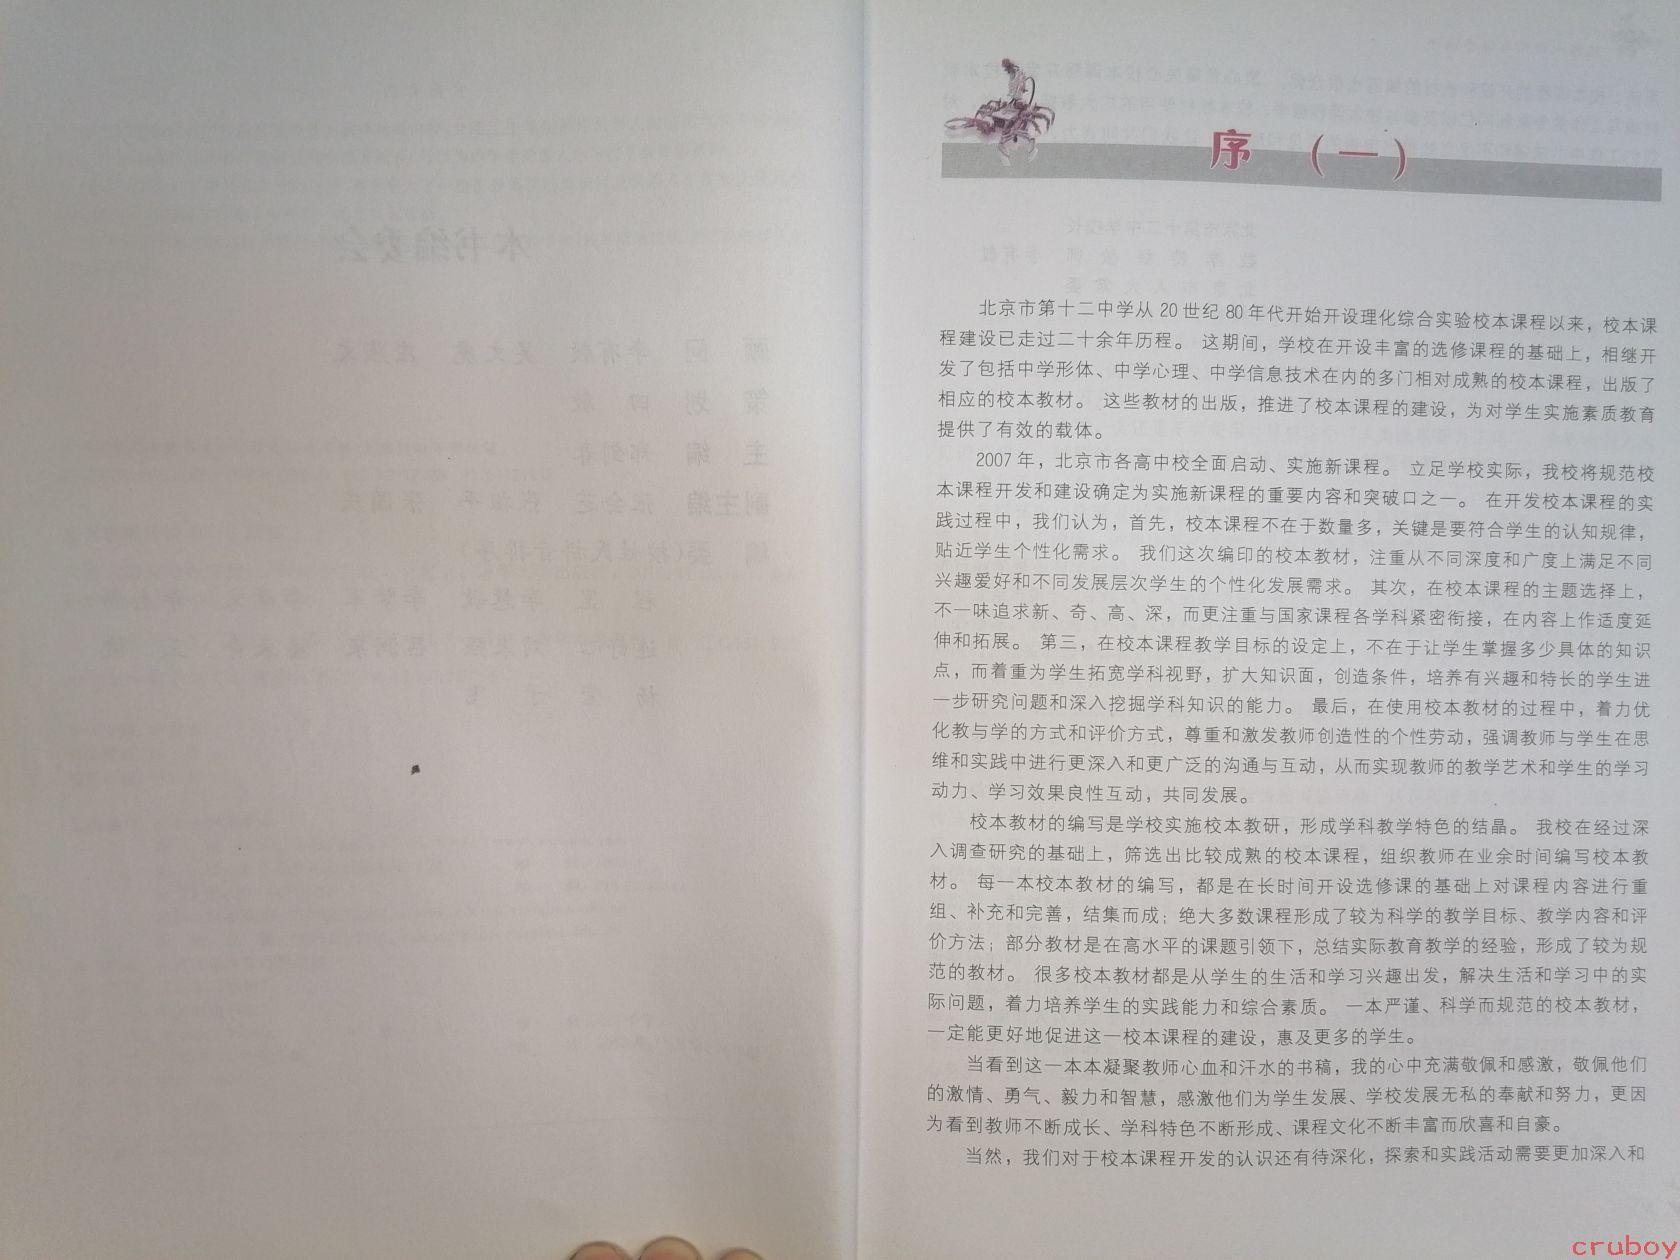 序 (一)
北京市第十二中学从 20 世纪 80 年代开始开设理化综合实验校本课程以来，校本课
程建设已走过二十余年历程。 这期间，学校在开设丰富的选修课程的基础上，相继开
发了包括中学形体、中学心理、中学信息技术在内的多门相对成熟的校本课程，出版了
相应的校本教材。 这些教材的出版，推进了校本课程的建设，为对学生实施素质教育
提供了有效的载体。
2007 年，北京市各高中校全面启动、实施新课程。 立足学校实际，我校将规范校
本课程开发和建设确定为实施新课程的重要内容和突破口之一。 在开发校本课程的实
践过程中，我们认为，首先，校本课程不在于数量多，关键是要符合学生的认知规律，
贴近学生个性化需求。 我们这次编印的校本教材，注重从不同深度和广度上满足不同
兴趣爱好和不同发展层次学生的个性化发展需求。 其次，在校本课程的主题选择上，
不一味追求新、奇、高、深，而更注重与国家课程各学科紧密衔接，在内容上作适度延
伸和拓展。 第三，在校本课程教学目标的设定上，不在于让学生掌握多少具体的知识
点，而着重为学生拓宽学科视野，扩大知识面，创造条件，培养有兴趣和特长的学生进
一步研究问题和深入挖掘学科知识的能力。 最后，在使用校本教材的过程中，着力优
化教与学的方式和评价方式，尊重和激发教师创造性的个性劳动，强调教师与学生在思
维和实践中进行更深入和更广泛的沟通与互动，从而实现教师的教学艺术和学生的学习
动力、学习效果良性互动，共同发展。
校本教材的编写是学校实施校本教研，形成学科教学特色的结晶。 我校在经过深
入调查研究的基础上，筛选出比较成熟的校本课程，组织教师在业余时间编写校本教
材。 每一本校本教材的编写，都是在长时间开设选修课的基础上对课程内容进行重
组、补充和完善，结集而成；绝大多数课程形成了较为科学的教学目标、教学内容和评
价方法；部分教材是在高水平的课题引领下，总结实际教育教学的经验，形成了较为规
范的教材。 很多校本教材都是从学生的生活和学习兴趣出发，解决生活和学习中的实
际问题，着力培养学生的实践能力和综合素质。 一本严谨、科学而规范的校本教材，
一定能更好地促进这一校本课程的建设，惠及更多的学生。
当看到这一本本凝聚教师心血和汗水的书稿，我的心中充满敬佩和感激，敬佩他们
的激情、勇气、毅力和智慧，感激他们为学生发展、学校发展无私的奉献和努力，更因
为看到教师不断成长、学科特色不断形成、课程文化不断丰富而欣喜和自豪。
当然，我们对于校本课程开发的认识还有待深化，探索和实践活动需要更加深入和
cruboy